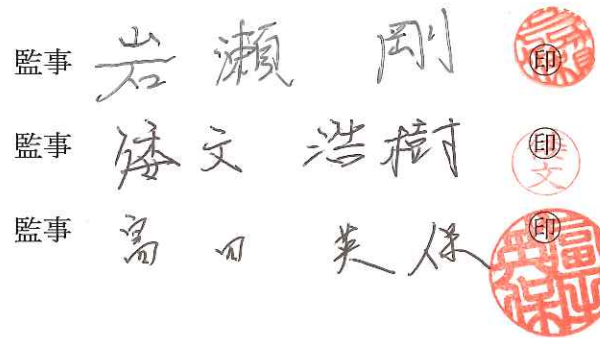 監事 岩瀬 剛 ㊞
監事 倭文 浩樹 ㊞
監事 富田 英保 ㊞